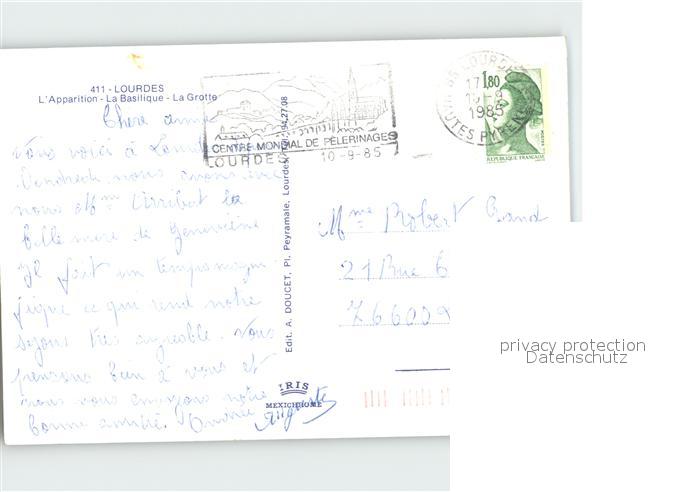 411 - LOURDES
L'Apparition - La Basilique - La Grotte
Chère amie
Vous voici à
Vendredi nous avons avec
nous Mme la
belle mère de Geneviève
Il fait un temps magni
fique ce qui rend notre
séjour très agréable. Vous
pensons bien à vous et
nous vous envoyons notre
bonne amitié.
Auguste
CENTRE MONDIAL DE PÈLERINAGES
LOURDES 10-9-85
LOURDES
1985
HAUTES PYRENEES
1,80
REPUBLIQUE FRANÇAISE
POSTES
Edit. A. DOUCET, Pl. Peyramale, Lourdes, 94.27.08
IRIS
MEXICHROME
Mme Robert
21 Rue
privacy protection
Datenschutz